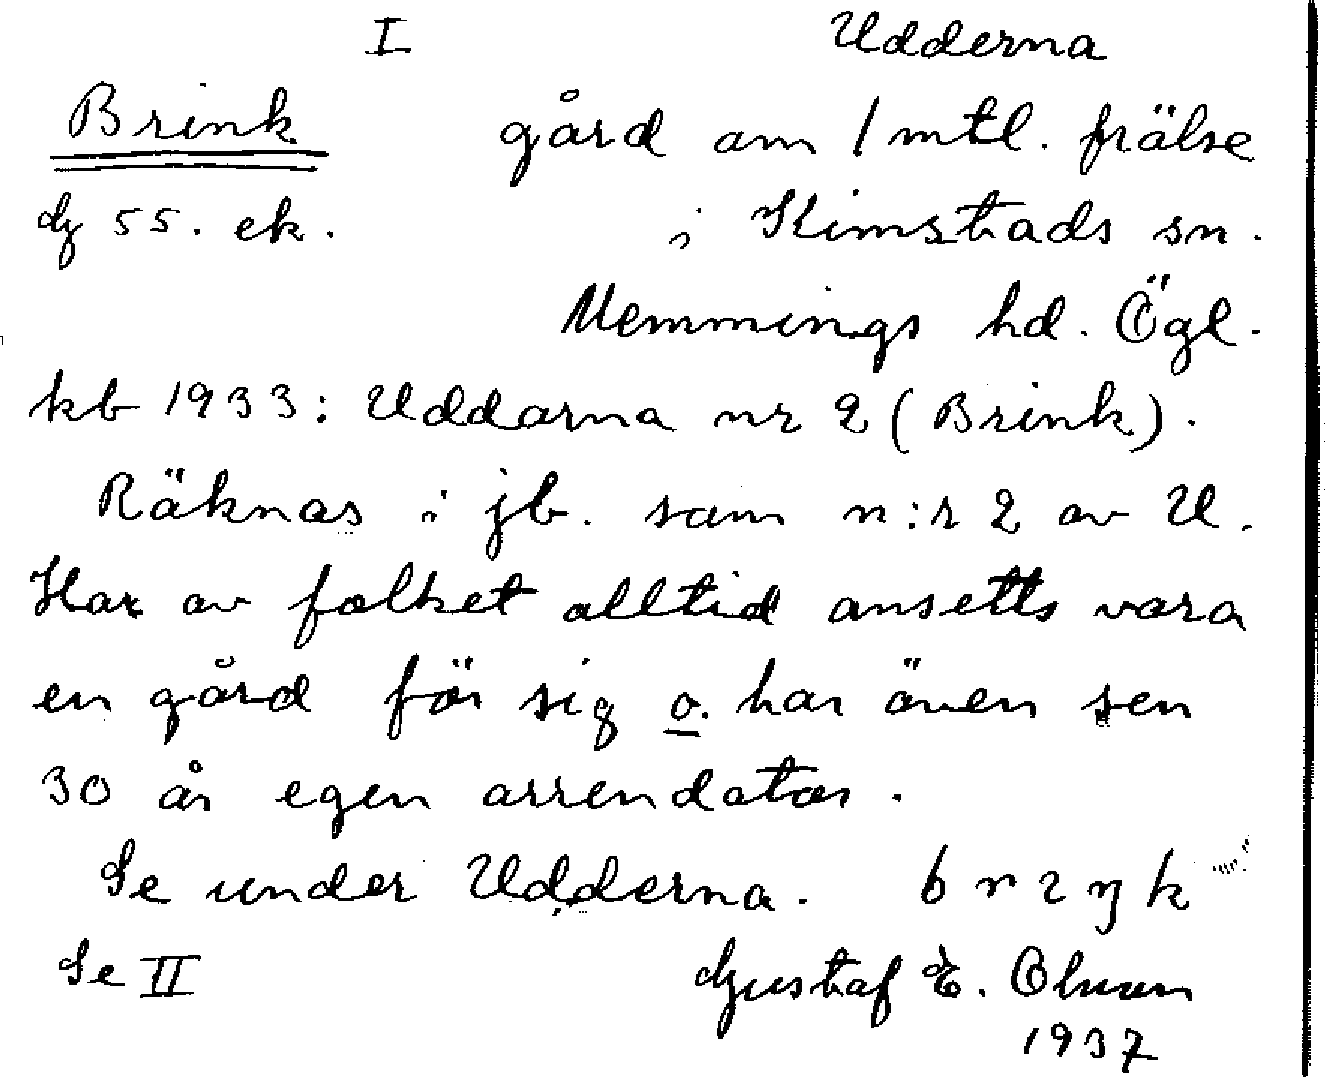 I Udderna
Brink gård om 1 mtl. frälse
dg 55. ek. i Kimstads sn.
Memmings hd. Ögl.
kb 1933: Uddarna nr 2 (Brink).
Räknas i jb. som n:r 2 av U.
Har av folket alltid ansetts vara
en gård för sig o. har även sen
30 år egen arrendator.
Se under Udderna.
Se II Gustaf E. Olsson
1937